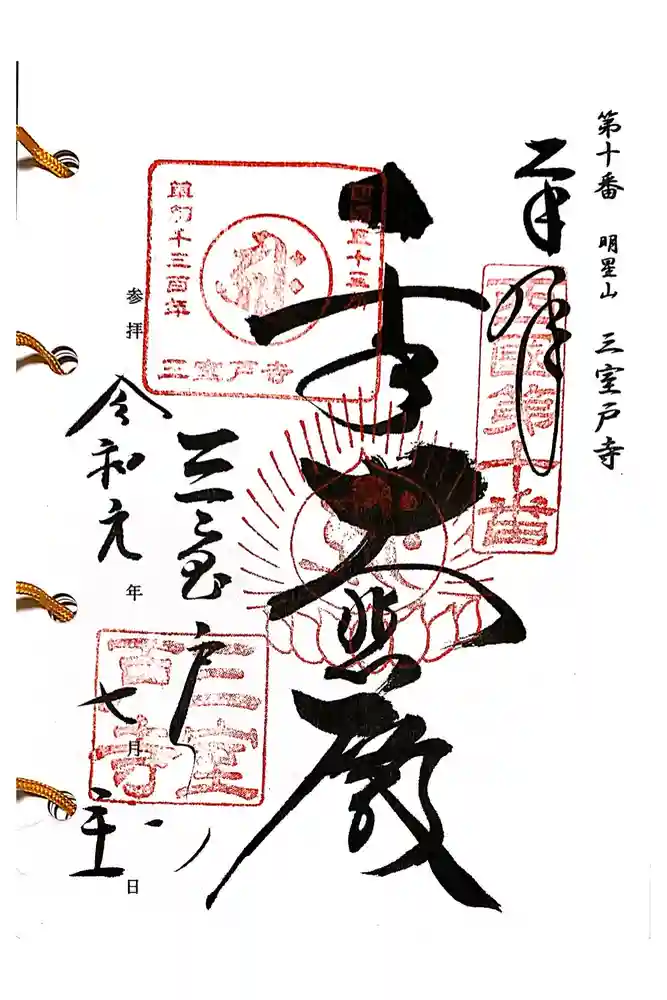 第十番 明星山 三室戸寺
奉拝
西国第十番
大悲殿
四国三十三所
草創千三百年
三室戸寺
三室戸寺
三室戸寺
参拝 令和元年七月 日